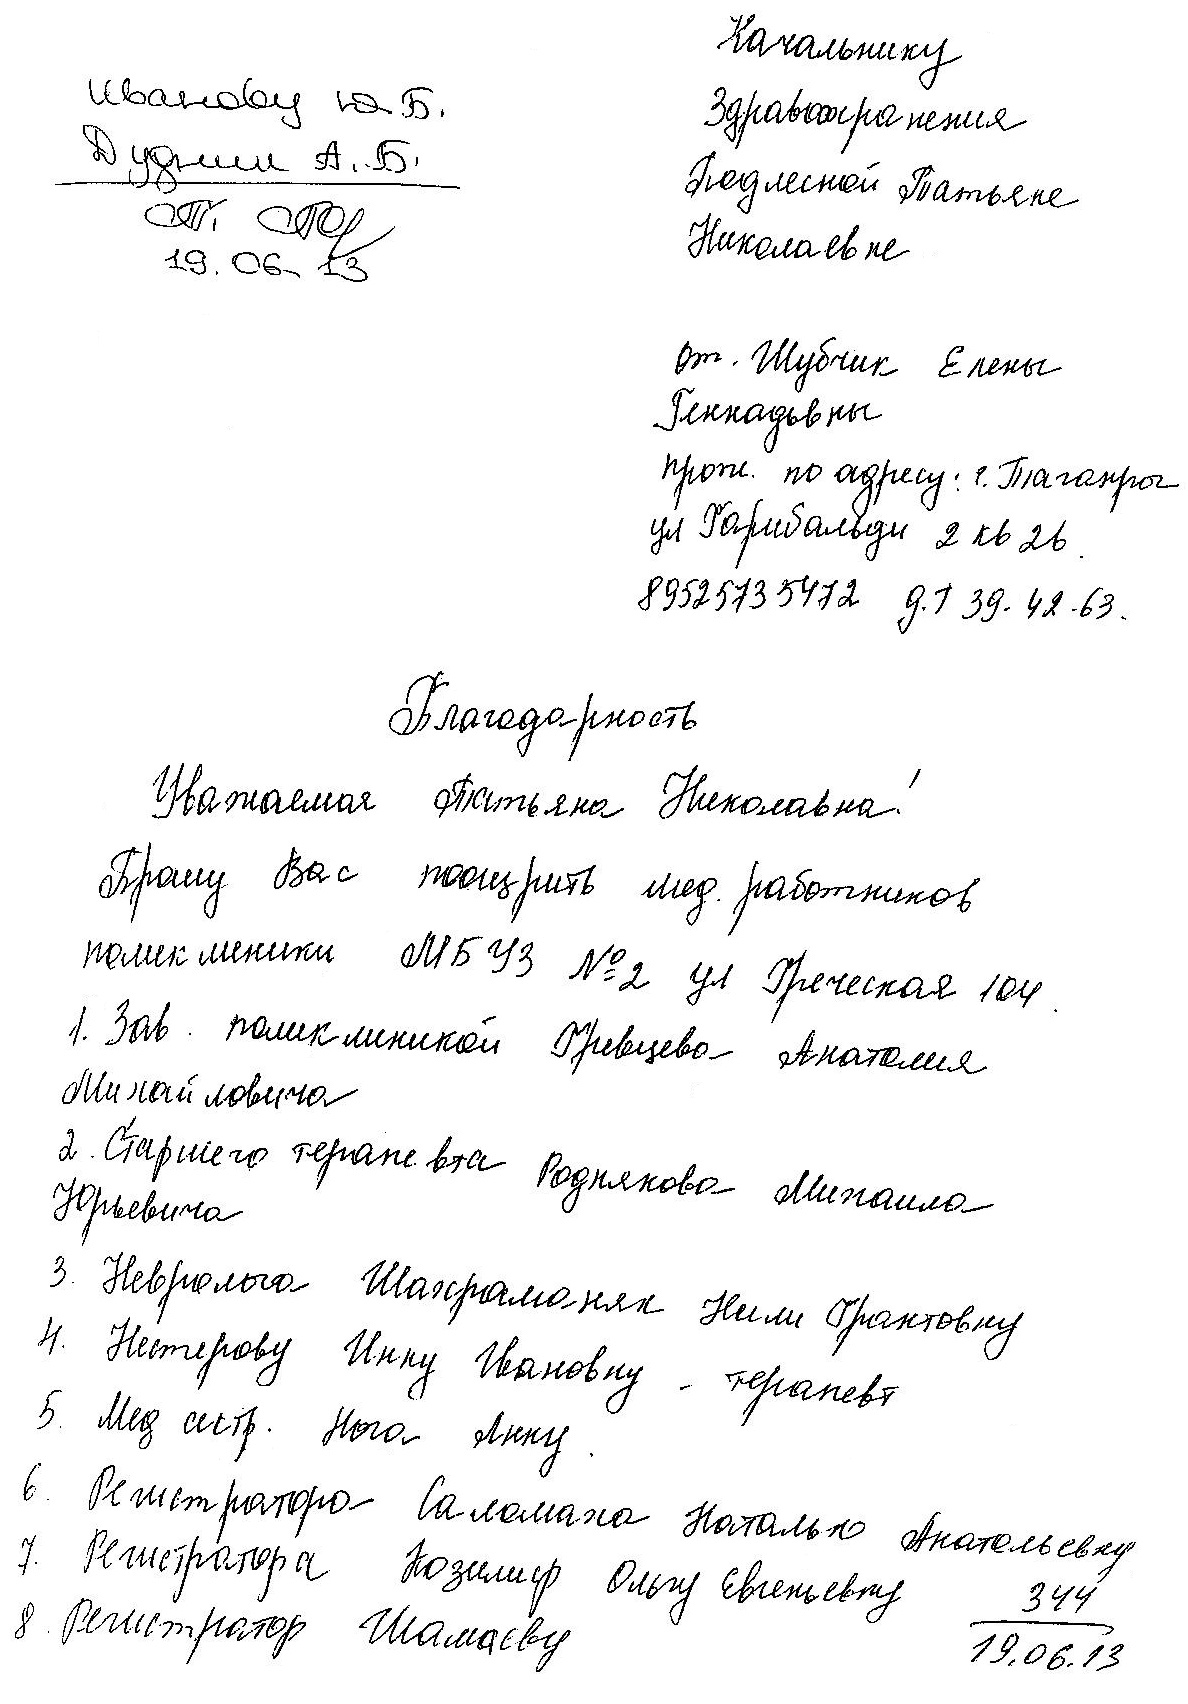 Иванову Ю.Б.
Дудник А.Б.
19.06.13
Начальнику
Здравоохранения
Подлесной Татьяне
Николаевне
от. Шубчик Елены
Геннадьвны
прож. по адресу: г. Таганрог
ул Гарибальди 2 кв 26
89525735472 д.т 39-42-63.
Благодарность
Уважаемая Татьяна Николавна!
Прошу Вас поощрить мед. работников
поликлиники МБУЗ №2 ул Греческая 104.
1. Зав. поликлиникой Гревцева Анатолия
Михайловича
2. Старшего терапевта Роднякова Михаила
Юрьевича
3. Невролога Шахраманян Нили Грантовну
4. Нестерову Инну Ивановну - терапевт
5. Мед сестр. Нога Анну.
6. Регистратора Саломаха Наталью Анатольевну
7. Регистратора Козилиф Ольгу Евгеньевну
8. Регистратор Шамаеву
344
19.06.13